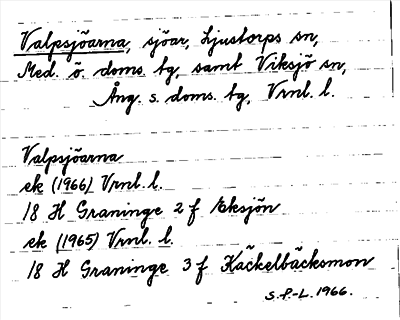 Valpsjöarna, sjöar, Ljustorps sn,
Med. ö. doms. tg, samt Viksjö sn,
Ång. s. doms. tg, Vrnl. l.
Valpsjöarna
ek (1966) Vrnl. l.
18 H Graninge 2 f Eksjön
ek (1965) Vrnl. l.
18 H Graninge 3 f Käckelbäcksmon
S.P-L. 1966.